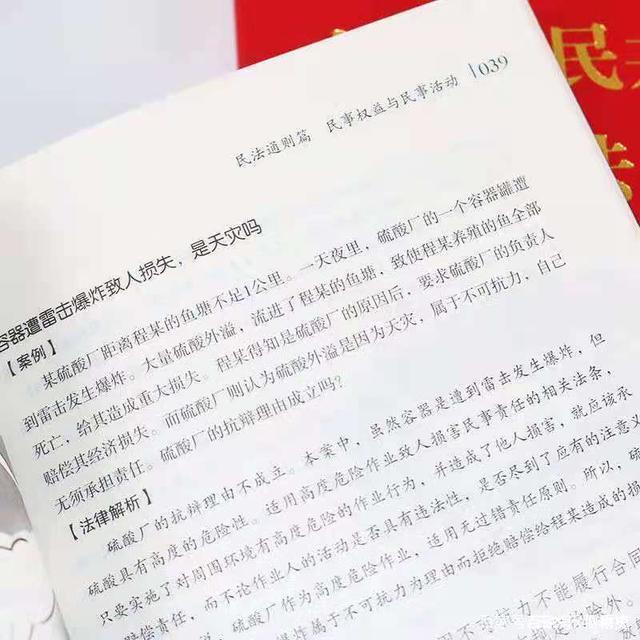 民
民法通则篇 民事权益与民事活动 039
容器遭雷击爆炸致人损失，是天灾吗
【案例】
某硫酸厂距离程某的鱼塘不足1公里。一天夜里，硫酸厂的一个容器罐遭
到雷击发生爆炸。大量硫酸外溢，流进了程某的鱼塘，致使程某养殖的鱼全部
死亡，给其造成重大损失。程某得知是硫酸厂的原因后，要求硫酸厂的负责人
赔偿其经济损失。而硫酸厂则认为硫酸外溢是因为天灾，属于不可抗力，自己
无须承担责任。硫酸厂的抗辩理由成立吗？
【法律解析】
硫酸厂的抗辩理由不成立。本案中，虽然容器是遭到雷击发生爆炸，但
硫酸具有高度的危险性。适用高度危险作业致人损害民事责任的相关法条，
只要实施了对周围环境有高度危险的作业行为，并造成了他人损害，就应该承
赔偿责任，而不论作业人的活动是否具有违法性，是否尽到了应有的注意义
硫酸厂作为高度危险作业，适用无过错责任原则。所以，硫
爆炸属于不可抗力为理由而拒绝赔偿给程某造成的损
因不可抗力不能履行合同
除外。